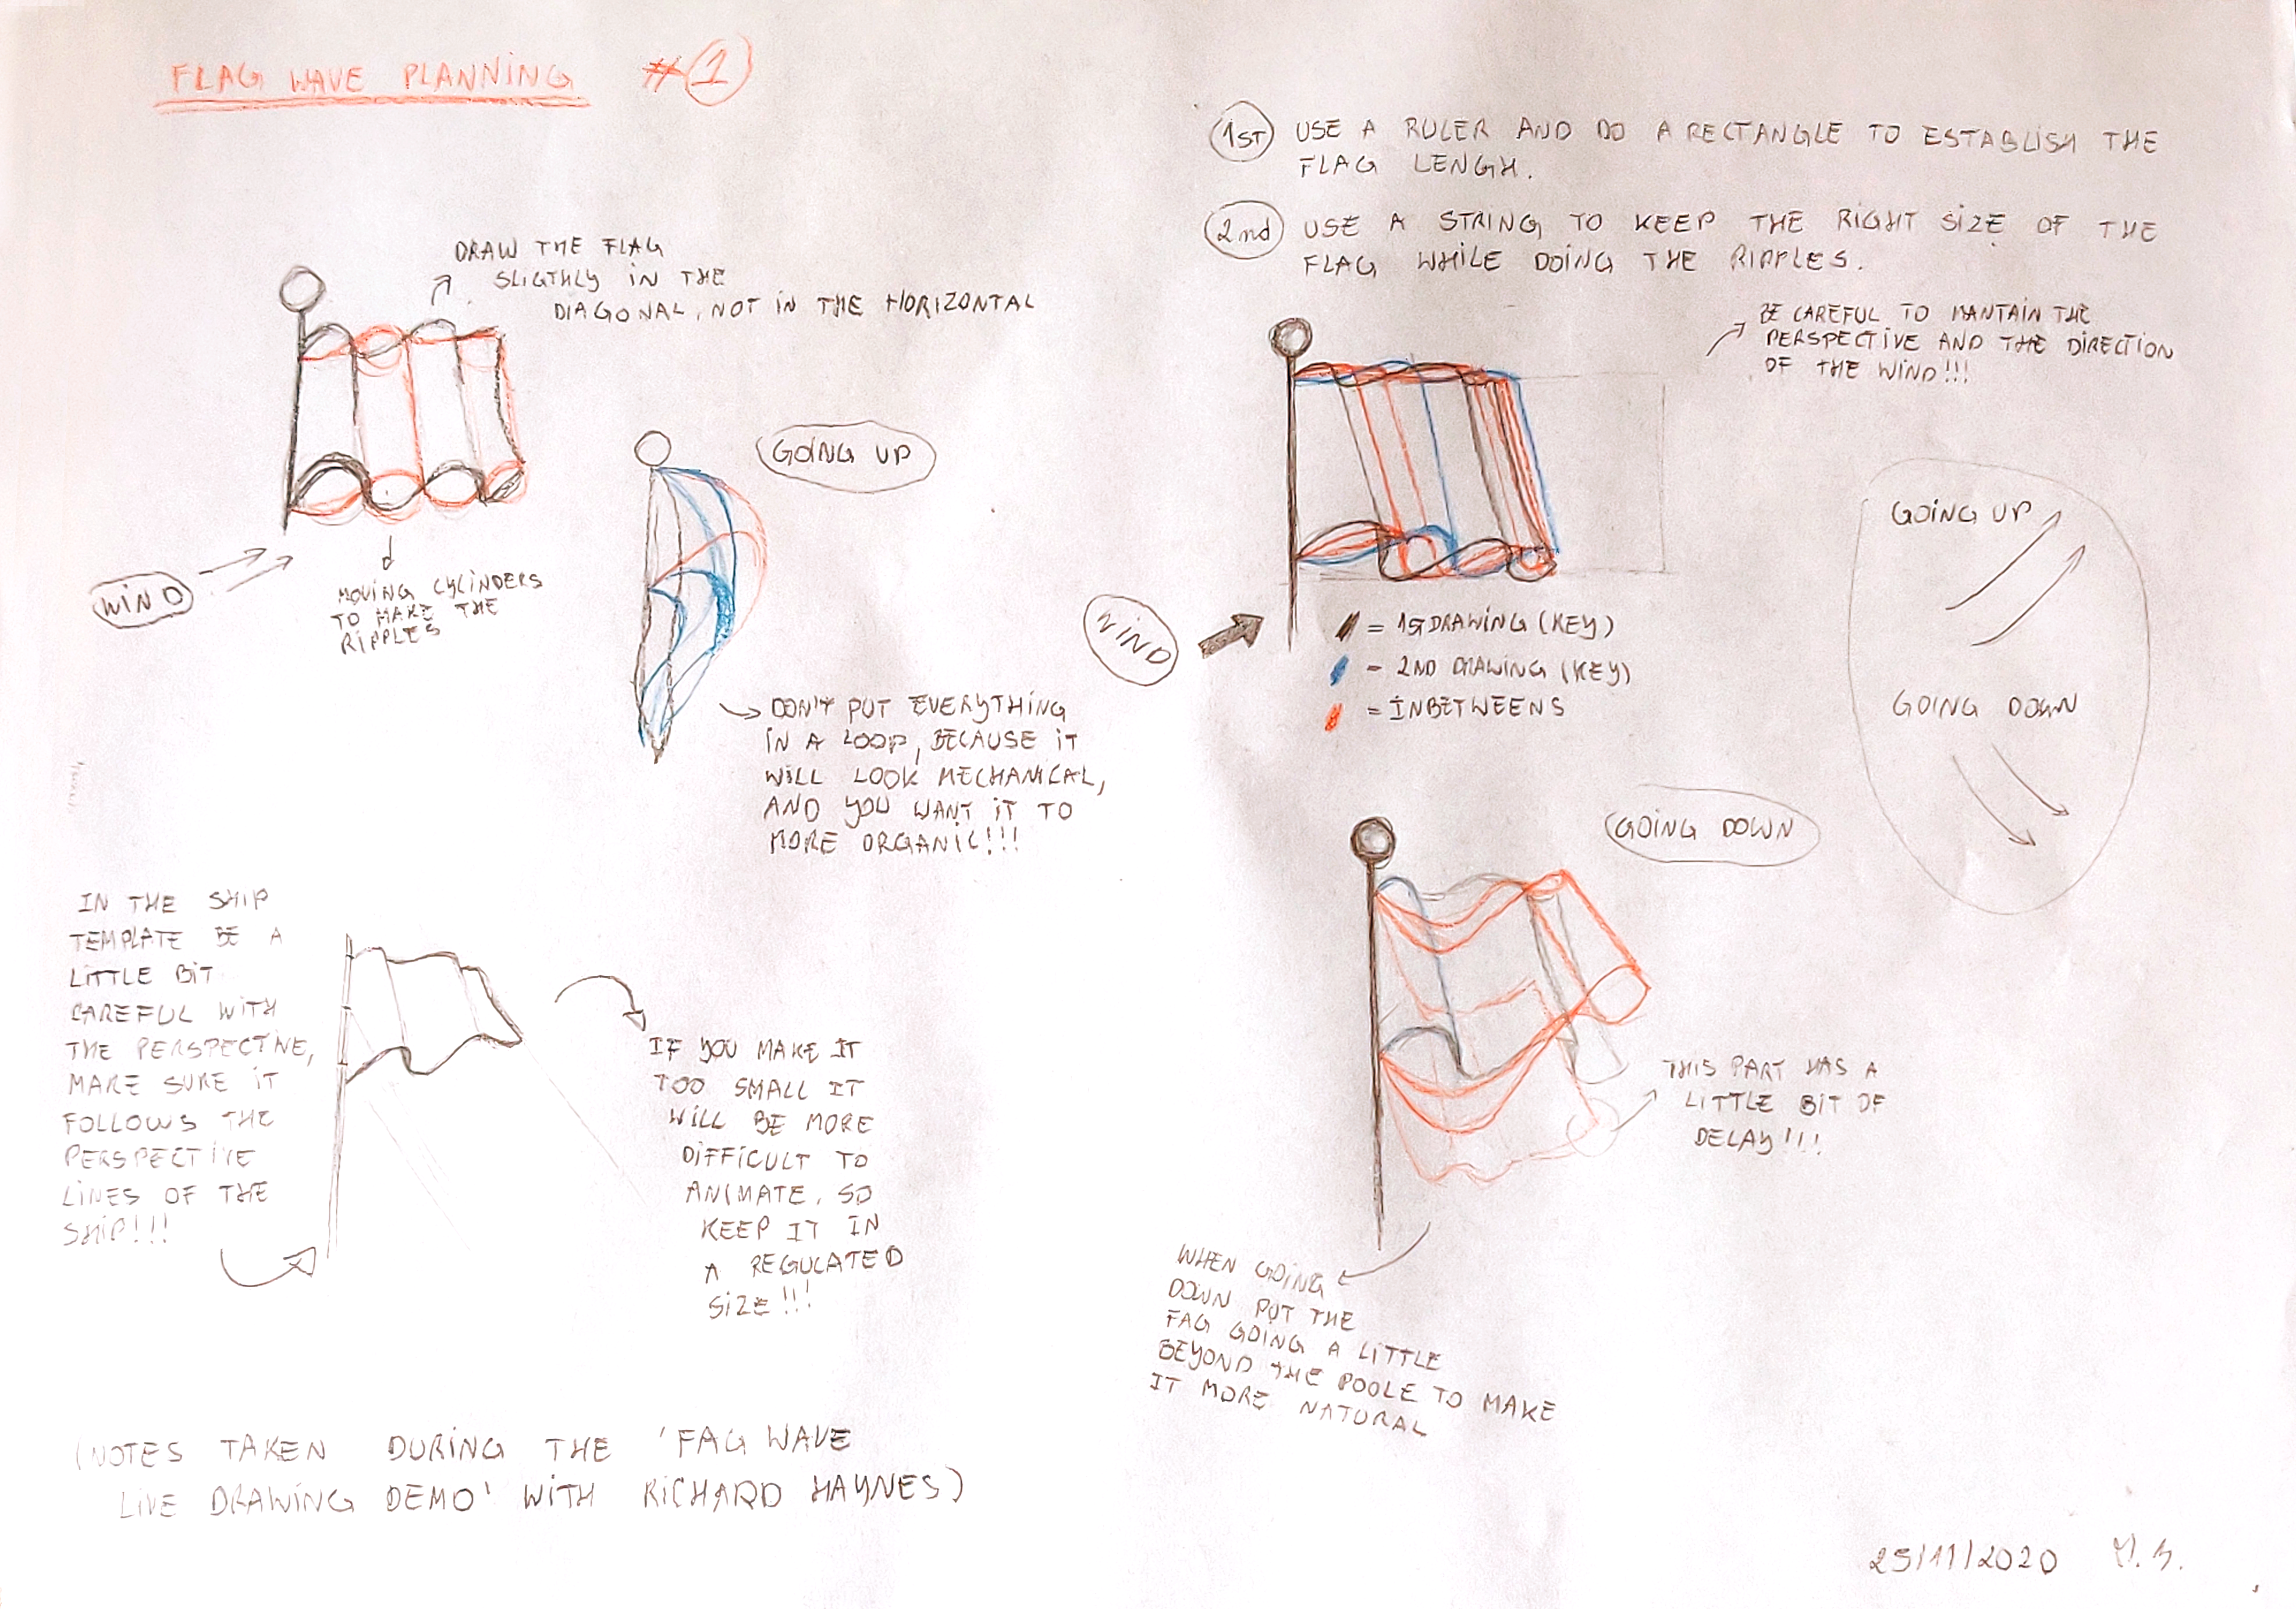 FLAG WAVE PLANNING #1
DRAW THE FLAG
SLIGTHLY IN THE
DIAGONAL, NOT IN THE HORIZONTAL
WIND
MOVING CYLINDERS
TO MAKE THE
RIPPLES
GOING UP
DON'T PUT EVERYTHING
IN A LOOP, BECAUSE IT
WILL LOOK MECHANICAL,
AND YOU WANT IT TO
MORE ORGANIC!!!
IN THE SHIP
TEMPLATE BE A
LITTLE BIT
CAREFUL WITH
THE PERSPECTIVE,
MAKE SURE IT
FOLLOWS THE
PERSPECTIVE
LINES OF THE
SHIP!!!
IF YOU MAKE IT
TOO SMALL IT
WILL BE MORE
DIFFICULT TO
ANIMATE, SO
KEEP IT IN
A REGULATED
SIZE!!!
(NOTES TAKEN DURING THE 'FAG WAVE
LIVE DRAWING DEMO' WITH RICHARD HAYNES)
1ST USE A RULER AND DO A RECTANGLE TO ESTABLISH THE
FLAG LENGH.
2nd USE A STRING TO KEEP THE RIGHT SIZE OF THE
FLAG WHILE DOING THE RIPPLES.
BE CAREFUL TO MANTAIN THE
PERSPECTIVE AND THE DIRECTION
OF THE WIND!!!
WIND
= 1ST DRAWING (KEY)
- 2ND DRAWING (KEY)
= INBETWEENS
GOING UP
GOING DOWN
GOING DOWN
THIS PART HAS A
LITTLE BIT OF
DELAY!!!
WHEN GOING
DOWN PUT THE
FAG GOING A LITTLE
BEYOND THE POOLE TO MAKE
IT MORE NATURAL
25/11/2020